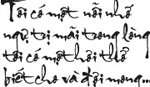 Tôi có một nỗi nhớ
ngự trị mãi trong lòng
tôi có một hồi thở
biết cho và đợi mong...